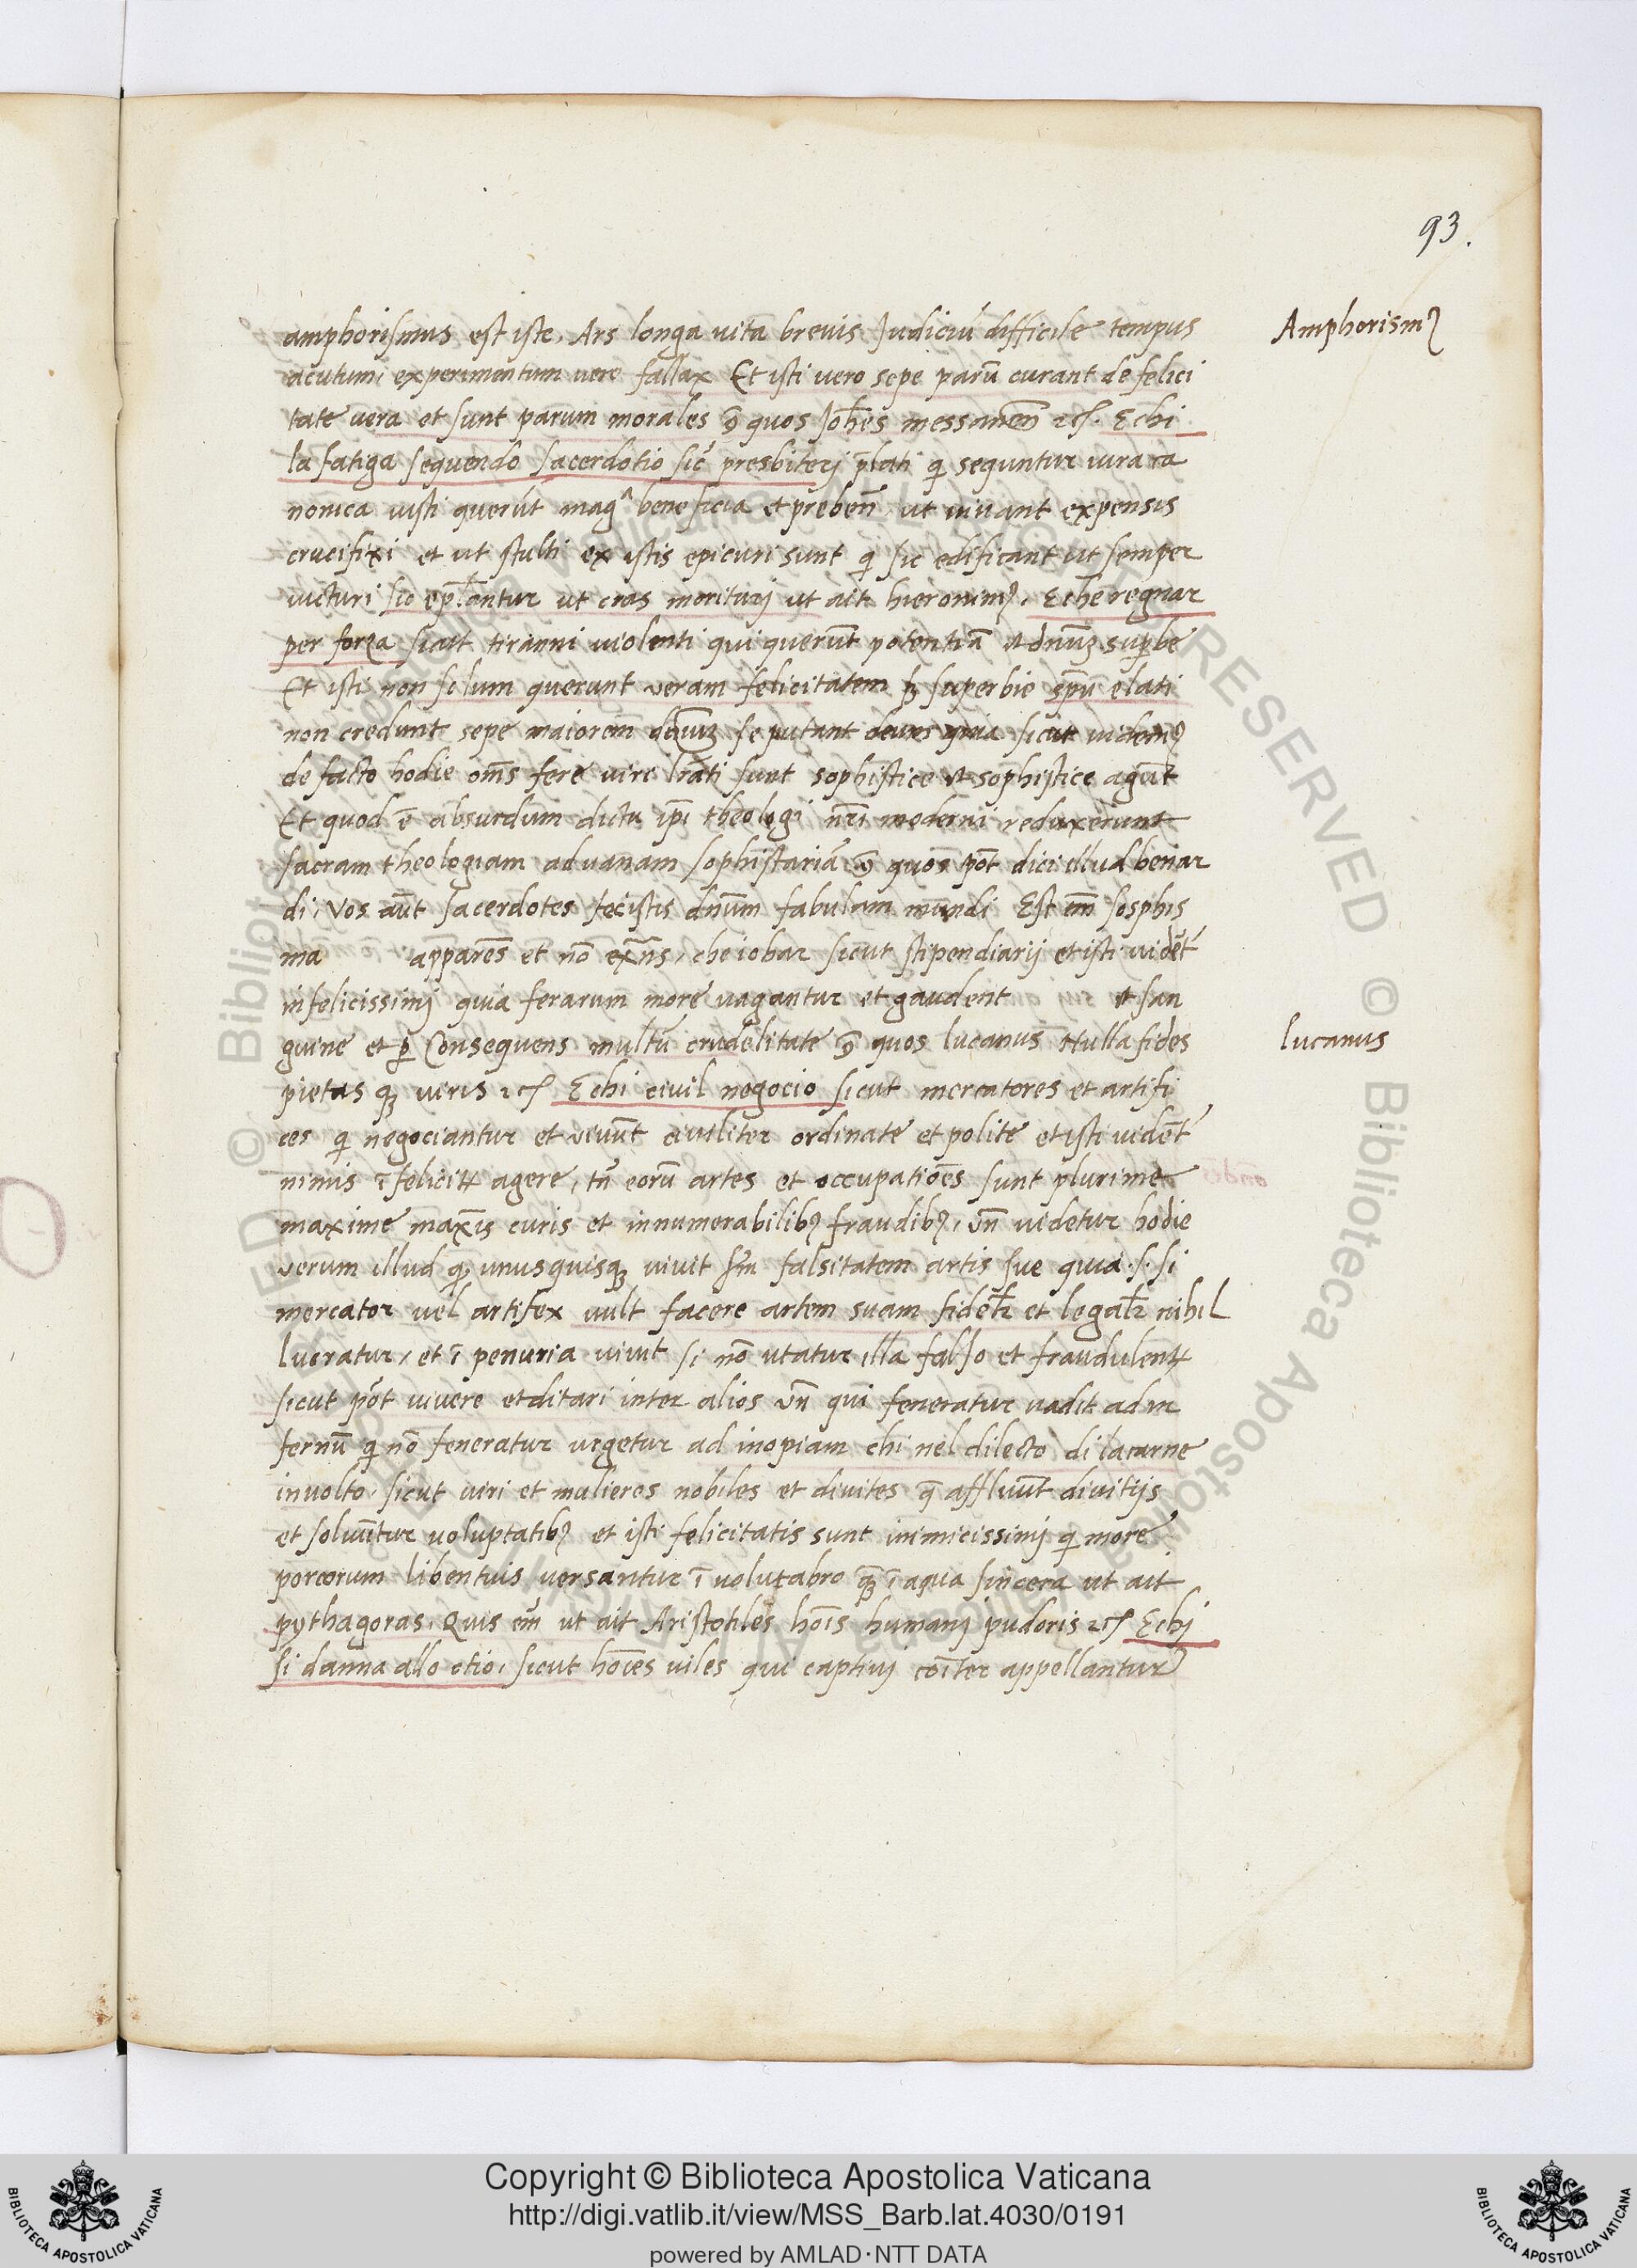 93.
amphorismus est iste, Ars longa vita brevis Judiciũ difficile tempus
Amphorismꝰ
acutum, experimentum vere fallax Et isti vero sepe parũ curant de felici
tate vera et sunt parum morales ꝯ quos Joħes messanen̄ ⁊cͭ. E chi
la fatiga sequendo sacerdotio sic̃ presbiterj p̄lati qͥ sequntur iura ca
nonica iusti querũt mag̃ beneficia et preben̄ ut vivant expensis
crucifixi et ut stulti ex istis epicuri sunt qͥ sic edificant ut semper
victuri sic eplantur ut cras moriturj ut ait hieronimꝰ. E che regnar
per forza sicut tiranni violenti qui querũt potentiã et dñiuꝫ superbe
Et isti non solum querunt veram felicitatem sꝫ superbie spũ elati
non credunt sepe maiorem se putant deum quia sicut videmꝰ
de facto hodie om̃s fere viri lrati sunt sophistice et sophistice agũt
Et quod ē absurdum dictu ip̃i theologi nr̃i moderni reduxerunt
sacram theologiam ad vanam sophistariã ꝯ quos põt dici illud bernar
di, Vos aũt sacerdotes fecistis dñum fabulam mundi Est em̃ sosphis
ma apparẽs et nõ exñs, che iobar sicut stipendiarij et isti vidẽt
infelicissimj quia ferarum more vagantur et gaudent et san
guine et ꝑ Consequens multũ crudelitate ꝯ quos lucanus Nulla fides
lucanus
pietas qꝫ viris ⁊cͭ E chi civil negocio sicut mercatores et artifi
ces qͥ negociantur et vivũt civiliter ordinate et polite et isti vidẽt
nimis ĩ felicitͬ agere, tñ eorũ artes et occupatiões sunt plurime
maxime max̃is curis et innumerabilibꝰ fraudibꝰ, vñ videtur hodie
verum illud qꝫ unusquisqꝫ vivit sm̃ falsitatem artis sue quia .s. si
mercator vel artifex vult facere artem suam fidelr̃ et legalr̃ nihil
lucratur, et ĩ penuria vivit si nõ utatur illa falso et fraudulentͬ
sicut põt vivere et ditari inter alios vñ qui feneratur vadit ad in
fernũ qͥ nõ feneratur urgetur ad inopiam chi nel dilecto di la carne
involto. sicut viri et mulieres nobiles et divites q̃ affluũt divitijs
et solvũtur voluptatibꝰ et isti felicitatis sunt inimicissimj qͥ more
porcorum libentius versantur ĩ volutabro qꝫ ĩ aqua sincera ut ait
pythagoras. Quis em̃ ut ait Aristotiles hoĩs humanj pudoris ⁊cͭ E chj
si danna allo otio, sicut hoĩes viles qui captivj coĩter appellantur
Copyright © Biblioteca Apostolica Vaticana
http://digi.vatlib.it/view/MSS_Barb.lat.4030/0191
powered by AMLAD·NTT DATA
BIBLIOTECA APOSTOLICA VATICANA
BIBLIOTECA APOSTOLICA VATICANA